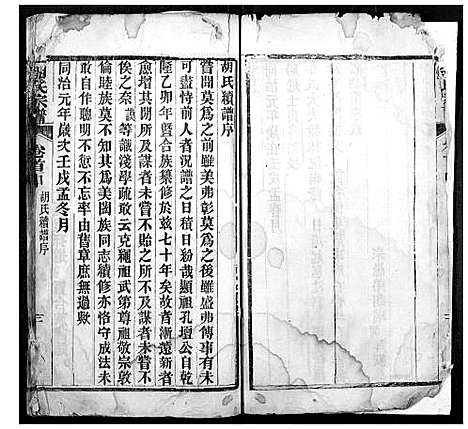 胡氏續譜序
嘗聞莫為之前雖美弗彰莫為之後雖盛弗傳事有未
可盡恃前人者況譜之日積日紛哉顯祖孔壇公自乾
隆乙卯年暨合族纂修於茲七十年矣故者漸遠新者
愈增其間所及謀者未嘗不貽之所不及謀者未嘗不
俟之宗 等識淺學疏敢云克繩祖武第尊祖敬宗敦
倫睦族莫不知其為美闔族同志續修亦恪守成法未
敢自作聰明不愆不忘率由舊章庶無過歟
同治元年歲次壬戌孟冬月
胡氏宗譜
卷首
胡氏續譜序